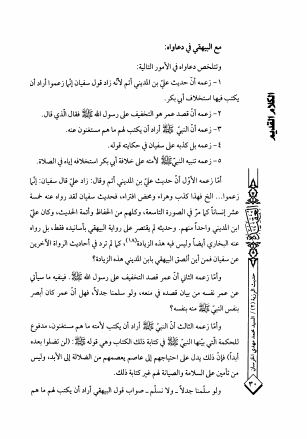 مع البيهقي في دعاواه:
وتتلخص دعاواه في الأمور التالية:
١ - زعمه أنّ حديث عليّ بن المديني أتم لأنّه زاد قول سفيان إنّما زعموا أراد أن
يكتب فيها استخلاف أبي بكر.
٢ - زعمه قصد عمر هو التخفيف على رسول الله ﷺ فقال الذي قال.
٣ - زعمه أنّ النبيّ ﷺ أراد أن يكتب لهم ما هم مستغنون عنه.
٤ - زعمه بل كذبه على سفيان في حكايته قوله.
٥ - زعمه تنبيه النبيّ ﷺ لأمته على خلافة أبي بكر استخلافه إياه في الصلاة.
أمّا زعمه الأوّل أنّ حديث عليّ بن المديني أتم وقال: زاد عليّ قال سفيان: إنّما
زعموا... الخ فهذا كذب وهراء ومحض افتراء، فحديث سفيان لقد رواه عنه خمسة
عشر إنساناً كما مرّ في الصورة التاسعة، وكلهم من الحفاظ وأئمة الحديث، وكان عليّ
ابن المديني واحداً منهم. وحديثه لم يقتصر على رواية البيهقي بأسانيده فقط، بل رواه
عنه البخاري أيضاً وليس فيه هذه الزيادة(١٨)، كما لم ترد في أحاديث الرواة الآخرين
عن سفيان فمن أين ألصق البيهقي بابن المديني هذه الزيادة؟
وأمّا زعمه الثاني أنّ عمر قصد التخفيف على رسول الله ﷺ. فينفيه ما سيأتي
عن عمر نفسه من بيان قصده في منعه، ولو سلّمنا جدلاً، فهل أنّ عمر كان أبصر
بنفس النبيّ ﷺ منه بنفسه؟
وأمّا زعمه الثالث أنّ النبيّ ﷺ أراد أن يكتب لأمته ما هم مستغنون، مدفوع
للحكمة التي بيّنها النبيّ ﷺ في كتابة ذلك الكتاب وهي قوله ﷺ: (لن تضلوا بعده
أبداً) فإنّ ذلك يدل على احتياجهم إلى عاصم يعصمهم من الضلالة إلى الأبد، وليس
من تأمين على السلامة والصيانة لهم غير كتابة ذلك.
ولو سلّمنا جدلاً ـ ولا نسلّم ـ صواب قول البيهقي أراد أن يكتب لهم ما هم
الكلام القديم
حديث الرزية (٢) / السيد محمد مهدي الخرسان
٣٠